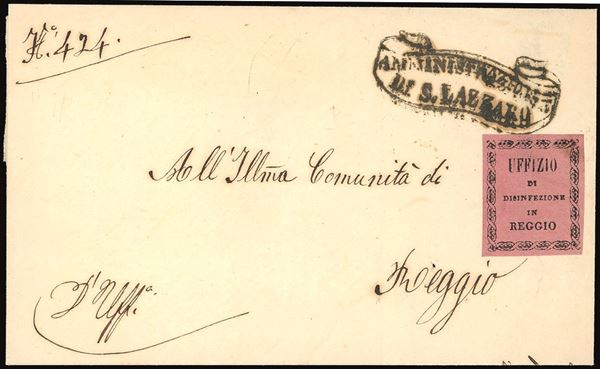 N.° 424.
AMMINISTRAZIONE
DI S. LAZZARO
UFFIZIO
DI
DISINFEZIONE
IN
REGGIO
All'Illma Comunità di
Reggio
D'Uff.a